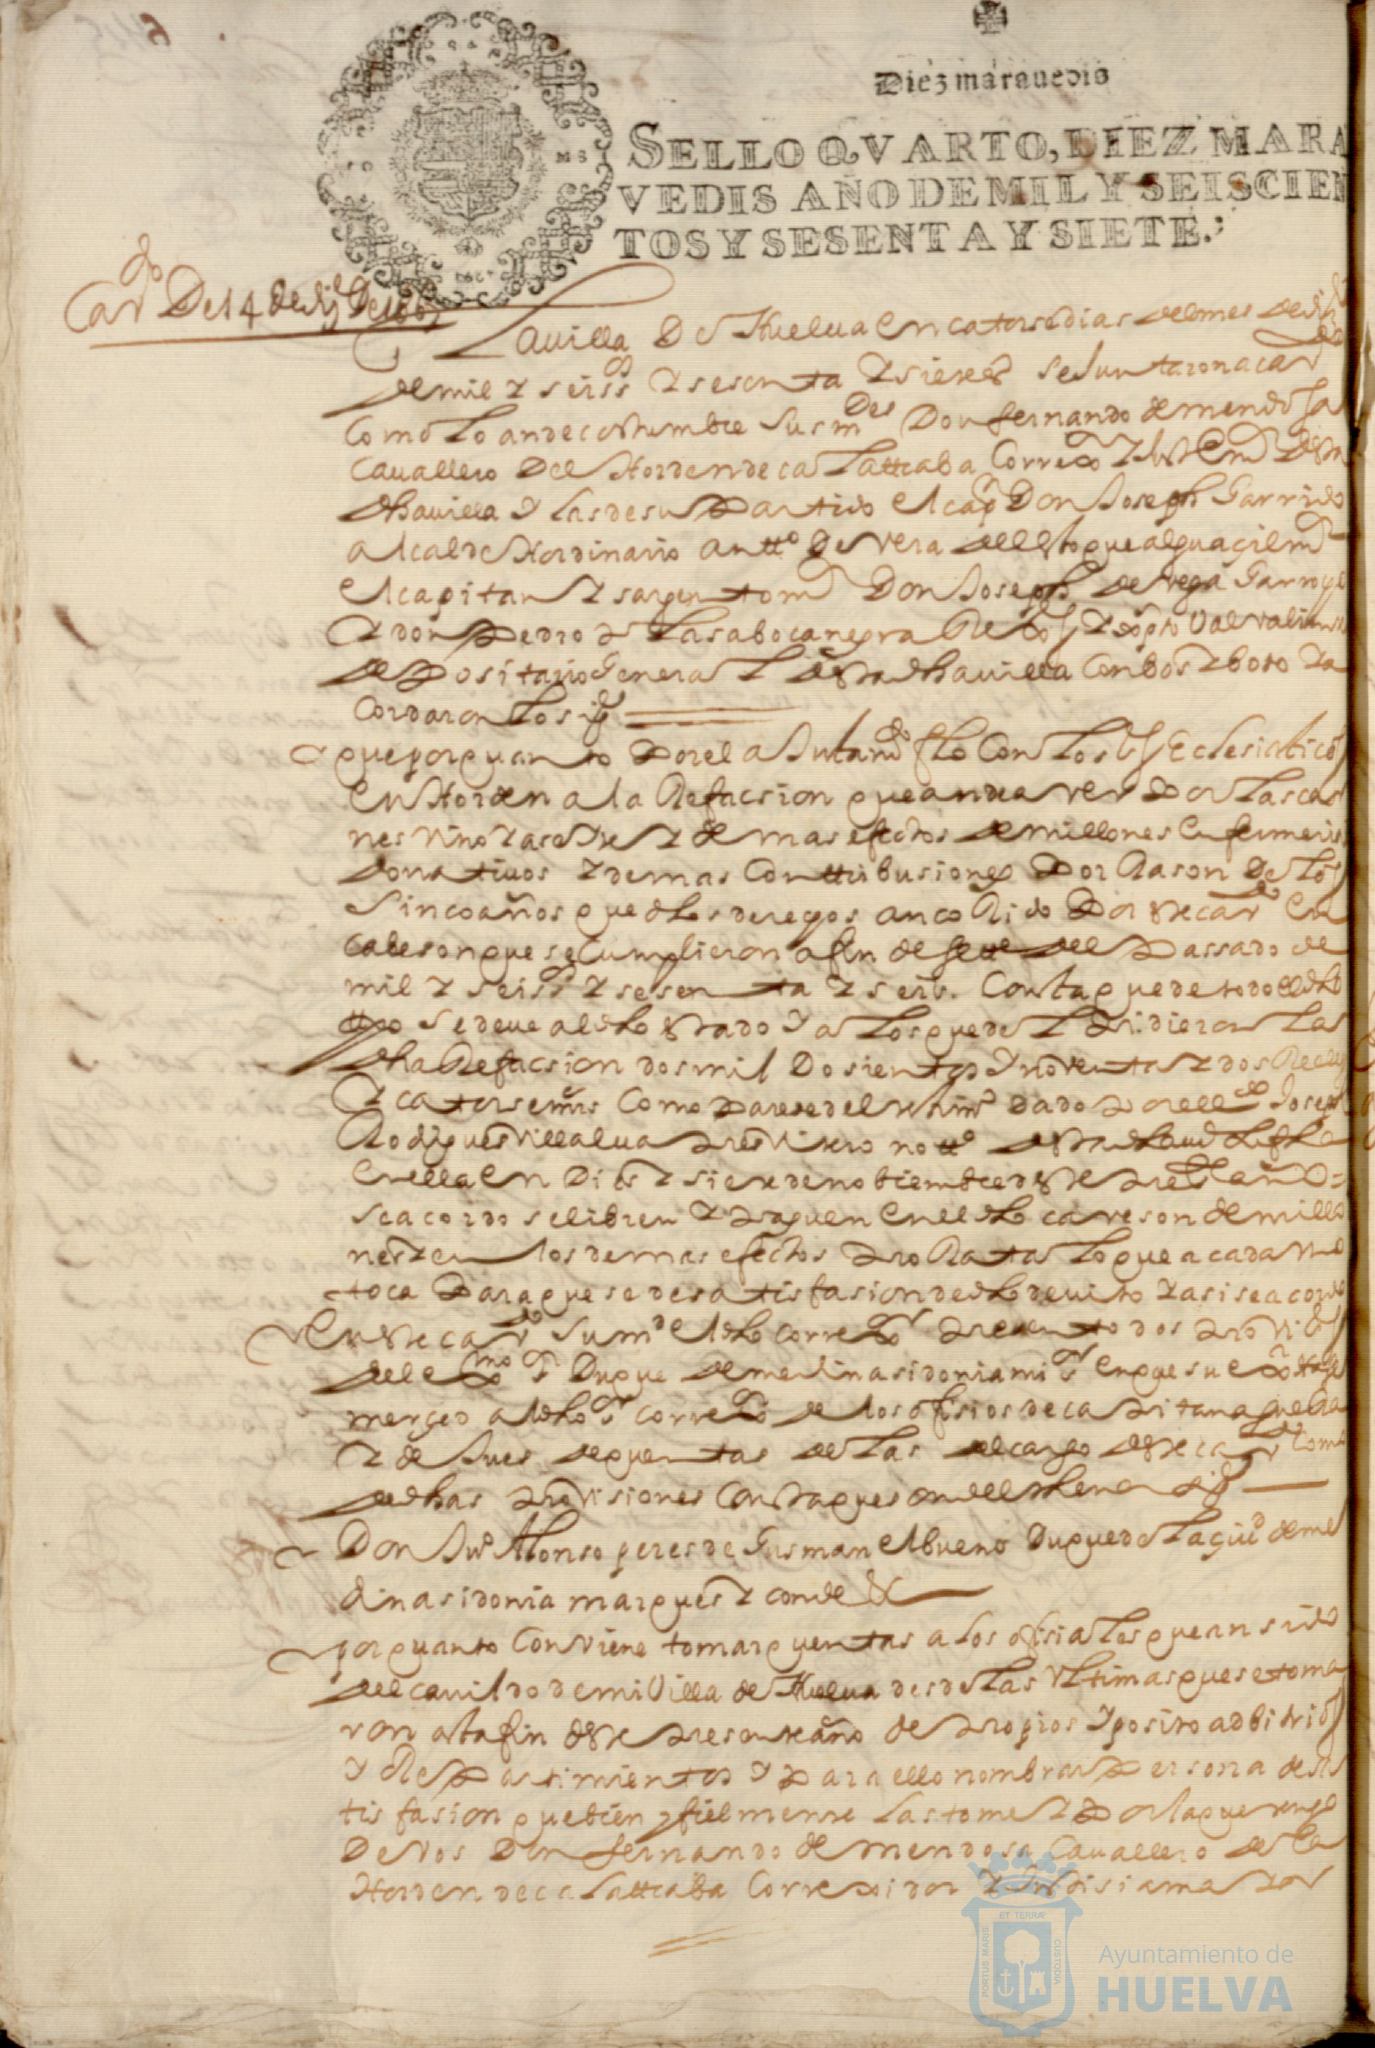 Diez marauedis
SELLO QVARTO, DIEZ MARA
VEDIS AÑO DE MIL Y SEISCIEN
TOS Y SESENTA Y SIETE.
Cavdo De 14 de
La villa De Huelua en catorse dias del mes de
de mil y seiss y sesenta y siete se Juntaron a cavdo
como lo an de costumbre sus mdes Don fernando de mendosa
Cavallero del Horden de calattraba Correxor
dha villa y las de su Partido el capn Don Joseph Garrido
alcalde Hordinario antto de Vera del alguaçil mr
el capitan y sargento mr Don Joseph de Vega Garro
y don Pedro de la sa bocanegra
depositario General desta dha villa con bos y boto y a
Cordaron lo sigte
que por quanto Por el aJustamto fho Con los Eclesiasticos
en Horden a la Refacsion que an de aver Por las car
nes vino y aseyte y demas efectos de millones
donativos y demas Conttribusiones Por Rason de los
sinco años que dhos deregos an coRido Por este cavdo en
cabeson que se cumplieron a fin de del Passado de
mil y seiss y sesenta y seis. Consta que de todo el dho
tpo se deve al dho estado y a los que de l Pidieron la
dha Refacsion dos mil Dosientos y noventa y dos Reales
y catorse mrs Como Parese del dado Por el Joseph
Rodrigues Villalua Presvitero notto desta dha
en ella en Dies y siete de nobiembre deste Preste año =
se acordo se libren y Paguen en el dho caveson de millo
nes y en los demas efectos ProRata lo que a cada uno
toca Para que se de satisfasion de dho devito y asi se acordo
En este cavdo su md el dho correxor Presento dos Provisiones
del exmo sr Duque de medina sidonia mi sr en que su exa
merçed al dho sr correxor de los ofisios de capitan a gueRa
y de Jues de quentas de las del cargo deste cavdo como
de dhas Provisiones Consta que son del thenor sigte
Don Juo Alonso peres de Gusman el bueno Duque de la çiud de me
dina sidonia marques y conde &
por quanto Conviene tomar quentas a los ofisiales que an sido
del cavildo de mi Villa de Huelua desde las Vltimas que se toma
ron asta fin deste presente año de Propios y posito adbitrios
y RePartimientos y Para ello nombrar Persona de sa
tisfasion que bien y fielmente las tome y Por la que tengo
De Vos Don fernando de mendosa Cavallero de la
Horden de calattraba Correxidor y
PORTUS MARIS ET TERRAE CUSTODIA
Ayuntamiento de
HUELVA